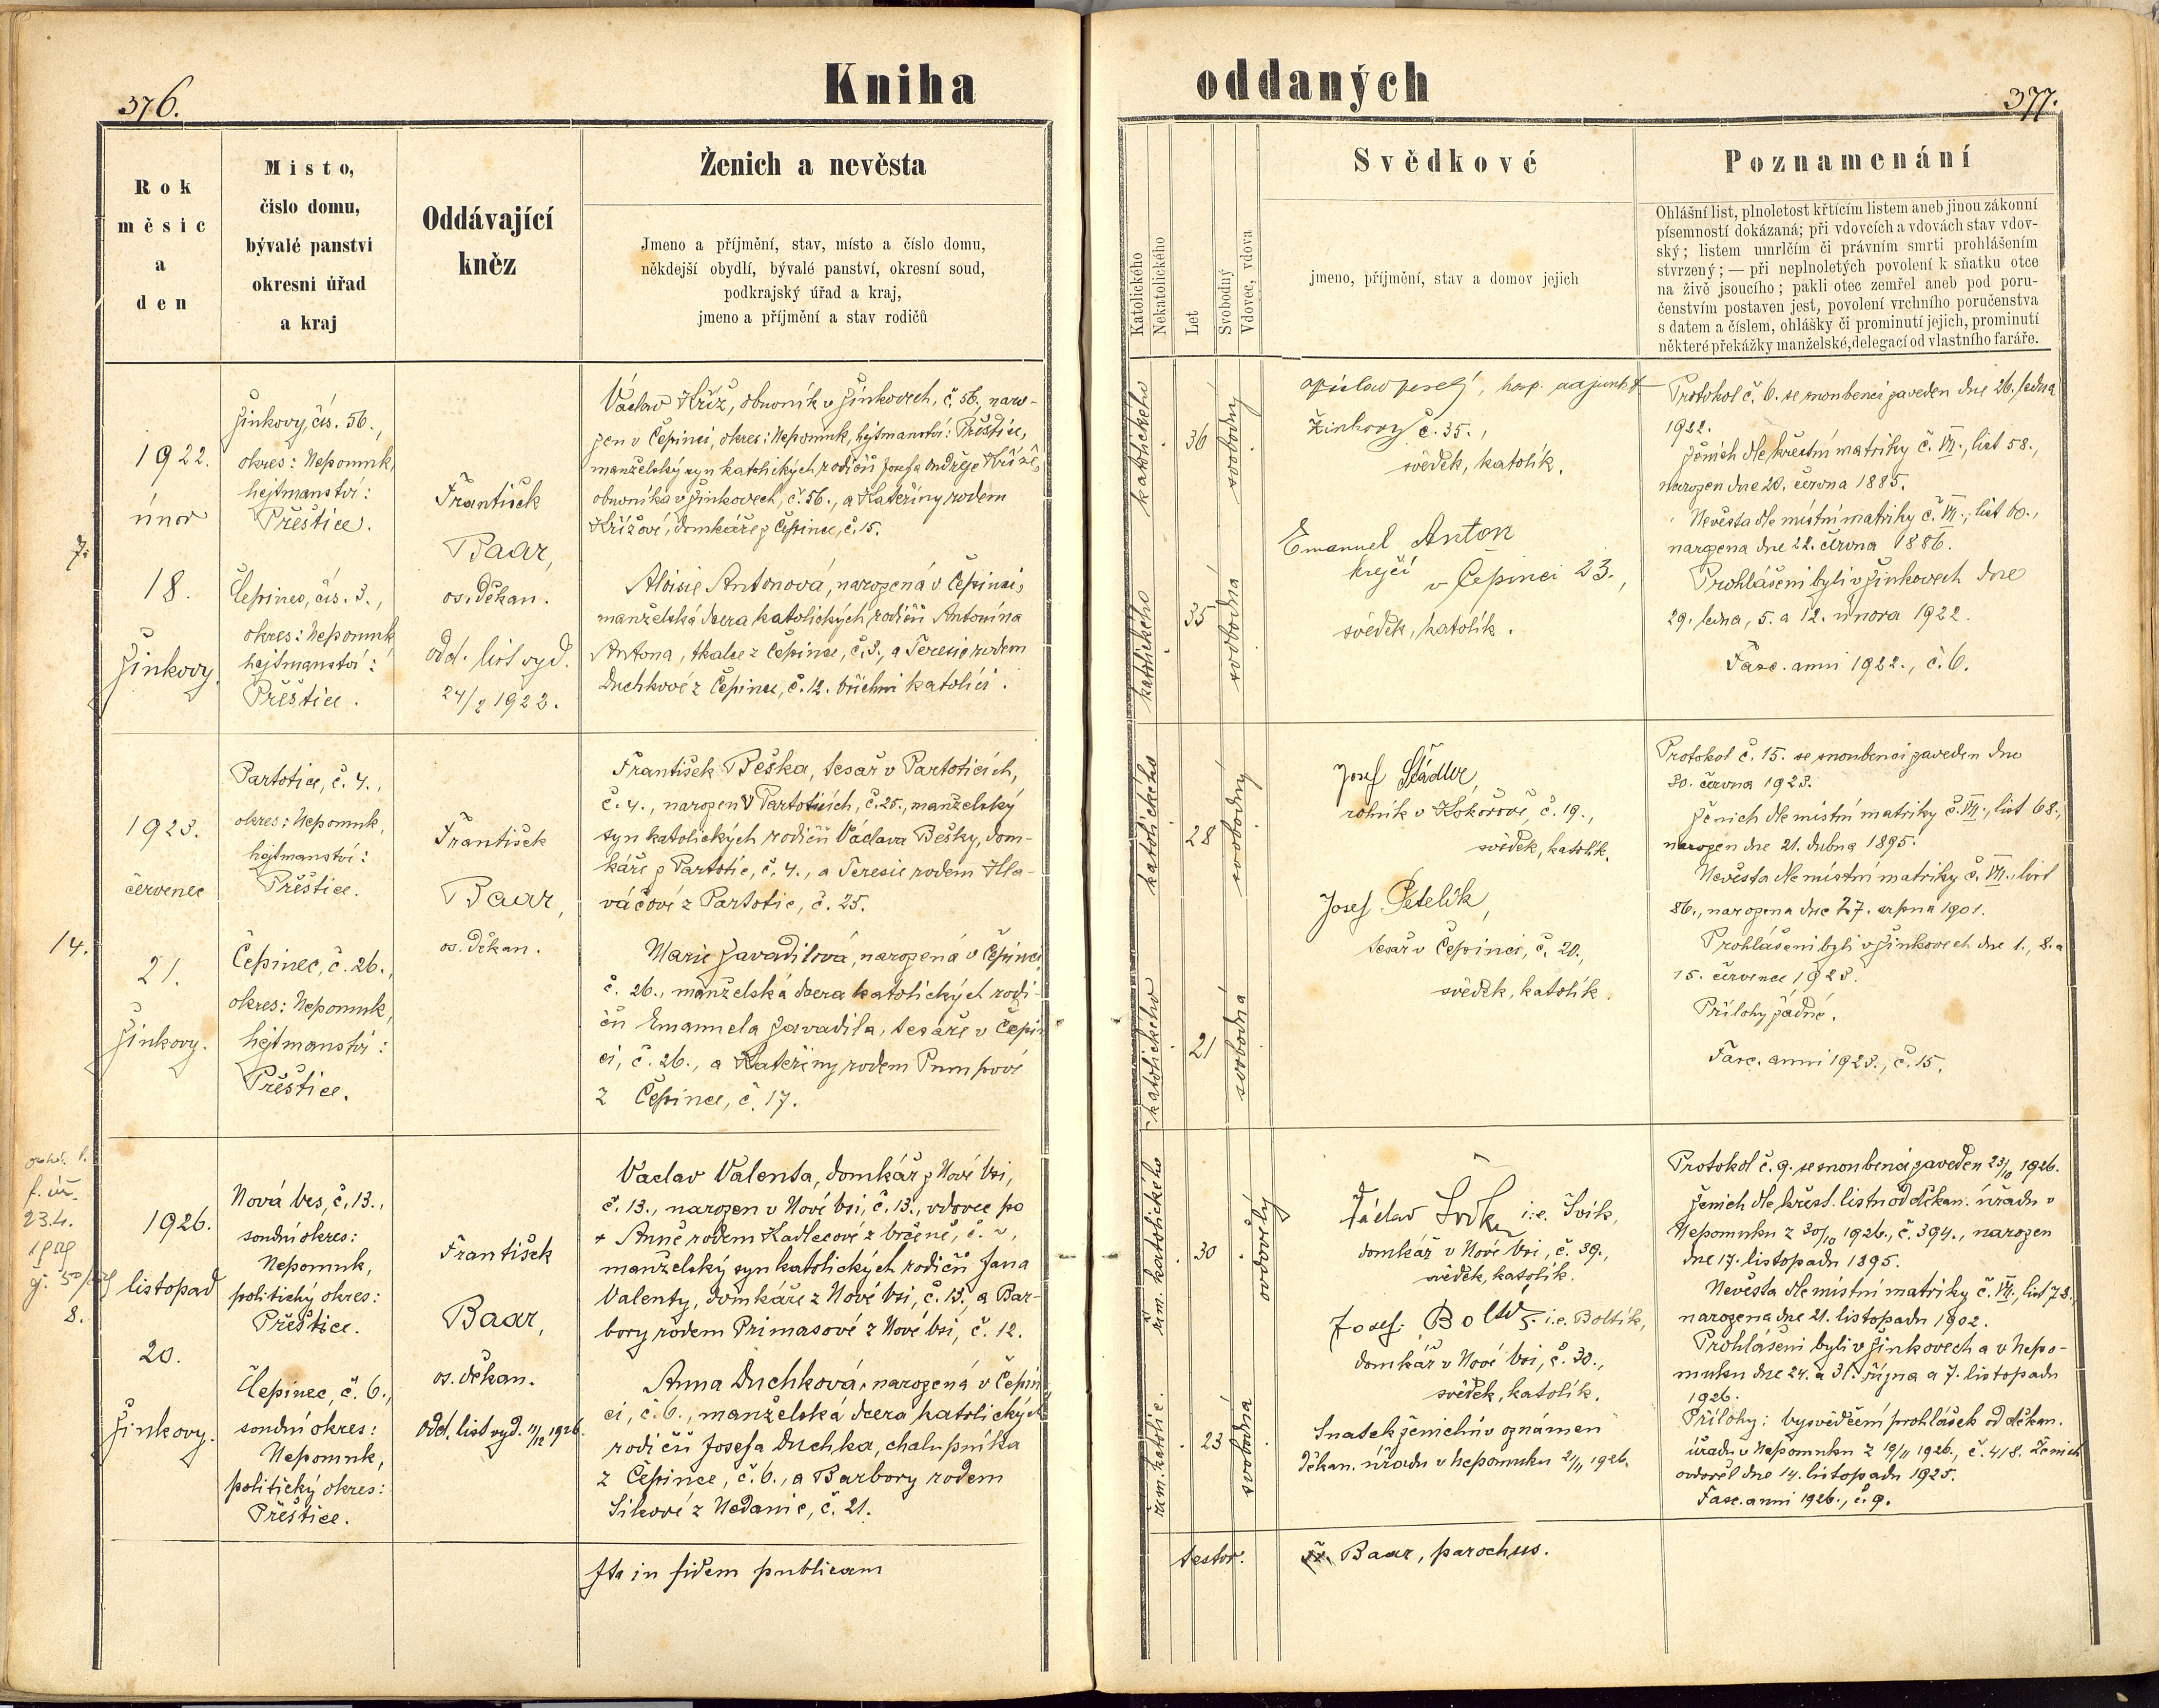 376.
Kniha oddaných
377.
Rok
měsíc
a
den
Místo,
číslo domu,
bývalé panství
okresní úřad
a kraj
Oddávající
kněz
Ženich a nevěsta
Jmeno a příjmění, stav, místo a číslo domu,
někdejší obydlí, bývalé panství, okresní soud,
podkrajský úřad a kraj,
jmeno a příjmění a stav rodičů
Katolického
Nekatolického
Let
Svobodný
Vdovec, vdova
Svědkové
jmeno, příjmění, stav a domov jejich
Poznamenání
Ohlášní list, plnoletost křtícím listem aneb jinou zákonní
písemností dokázaná; při vdovcích a vdovách stav vdov-
ský; listem umrlčím či právním smrti prohlášením
stvrzený; — při neplnoletých povolení k sňatku otce
na živě jsoucího; pakli otec zemřel aneb pod poru-
čenstvím postaven jest, povolení vrchního poručenstva
s datem a číslem, ohlášky či prominutí jejich, prominutí
některé překážky manželské, delegací od vlastního faráře.
7.
1922.
únor
18.
Žinkovy.
Žinkovy, čís. 56.,
okres: Nepomuk,
hejtmanství:
Přeštice.
Čepinec, čís. 3.,
okres: Nepomuk,
hejtmanství:
Přeštice.
František
Baar,
os. děkan.
odd. list vyd.
24/2 1922.
Václav Kříž, obuvník v Žinkovech, č. 56, naro-
zen v Čepinci, okres: Nepomuk, hejtmanství: Přeštice,
manželský syn katolických rodičů Josefa Ondřeje Kříže,
obuvníka v Žinkovech, č. 56., a Kateřiny rodem
Křížové, domkáře z Čepince, č. 15.
Aloisie Antonová, narozená v Čepinci,
manželská dcera katolických rodičů Antonína
Antona, tkalce z Čepince, č. 3., a Teresie rodem
Duchkové z Čepince, č. 12. všichni katolíci.
katolického
36
svobodný
katolického
35
svobodná
hosp. adjunkt
Žinkovy č. 35.,
svědek, katolík.
Emanuel Anton
krejčí v Čepinci 23.,
svědek, katolík.
Protokol č. 6. se snoubenci zaveden dne 26. ledna
1922.
Ženich dle křestní matriky č. VII., list 58.,
narozen dne 20. června 1885.
Nevěsta dle místní matriky č. VII., list 60.,
narozena dne 22. června 1886.
Prohlášeni byli v Žinkovech dne
29. ledna, 5. a 12. února 1922.
Fasc. anni 1922., č. 6.
14.
1923.
červenec
21.
Žinkovy.
Partotice, č. 4.,
okres: Nepomuk,
hejtmanství:
Přeštice.
Čepinec, č. 26.,
okres: Nepomuk,
hejtmanství:
Přeštice.
František
Baar,
os. děkan.
František Beška, tesař v Partoticích,
č. 4., narozen v Partoticích, č. 25., manželský
syn katolických rodičů Václava Bešky, dom-
káře z Partotic, č. 4., a Teresie rodem Hla-
váčové z Partotic, č. 25.
Marie Zavadilová, narozená v Čepinci
č. 26., manželská dcera katolických rodi-
čů Emanuela Zavadila, tesaře v Čepin
ci, č. 26., a Kateřiny rodem Pumpové
z Čepince, č. 17.
katolického
28
svobodný
katolického
21
svobodná
Josef Štádler,
rolník v Kokořově, č. 19.,
svědek, katolík.
Josef Petelík,
tesař v Čepinci, č. 20.,
svědek, katolík.
Protokol č. 15. se snoubenci zaveden dne
30. června 1923.
Ženich dle místní matriky č. VII., list 68.,
narozen dne 21. dubna 1895.
Nevěsta dle místní matriky č. VII., list
86., narozena dne 27. srpna 1901.
Prohlášeni byli v Žinkovech dne 1., 8. a
15. července 1923.
Přílohy žádné.
Fasc. anni 1923., č. 15.
23.4.
8.
1926.
listopad
20.
Žinkovy.
Nová Ves, č. 13.,
soudní okres:
Nepomuk,
politický okres:
Přeštice.
Čepinec, č. 6.,
soudní okres:
Nepomuk,
politický okres:
Přeštice.
František
Baar,
os. děkan.
odd. list vyd. 11/12 1926.
Václav Valenta, domkář z Nové Vsi,
č. 13., narozen v Nové Vsi, č. 13., vdovec po
+ Anně rodem Kadlecové z Vrčeně, č. ~,
manželský syn katolických rodičů Jana
Valenty, domkáře z Nové Vsi, č. 13., a Bar-
bory rodem Primasové z Nové Vsi, č. 12.
Anna Duchková, narozená v Čepin
ci, č. 6., manželská dcera katolických
rodičů Josefa Duchka, chalupníka
z Čepince, č. 6., a Barbory rodem
Síkové z Nedanic, č. 21.
řím. katolického
30
ovdovělý
řím. katolic.
23
svobodná
Václav i.e. Švík,
domkář v Nové Vsi, č. 39.,
svědek, katolík.
Josef i.e. Boltík,
domkář v Nové Vsi, č. 30.,
svědek, katolík.
Sňatek ženichův oznámen
děkan. úřadu v Nepomuku 21/11 1926.
Protokol č. 9. se snoubenci zaveden 23/10 1926.
Ženich dle křest. listu od děkan. úřadu v
Nepomuku z 30/10 1926., č. 394., narozen
dne 17. listopadu 1895.
Nevěsta dle místní matriky č. VII., list 78.,
narozena dne 21. listopadu 1902.
Prohlášeni byli v Žinkovech a v Nepo-
muku dne 24. a 31. října a 7. listopadu
1926.
Přílohy: vysvědčení prohlášek od děkan.
úřadu v Nepomuku z 19/11 1926., č. 418. Ženich
ovdověl dne 14. listopadu 1925.
Fasc. anni 1926., č. 9.
Ita in fidem publicam
testor. Fr. Baar, parochus.